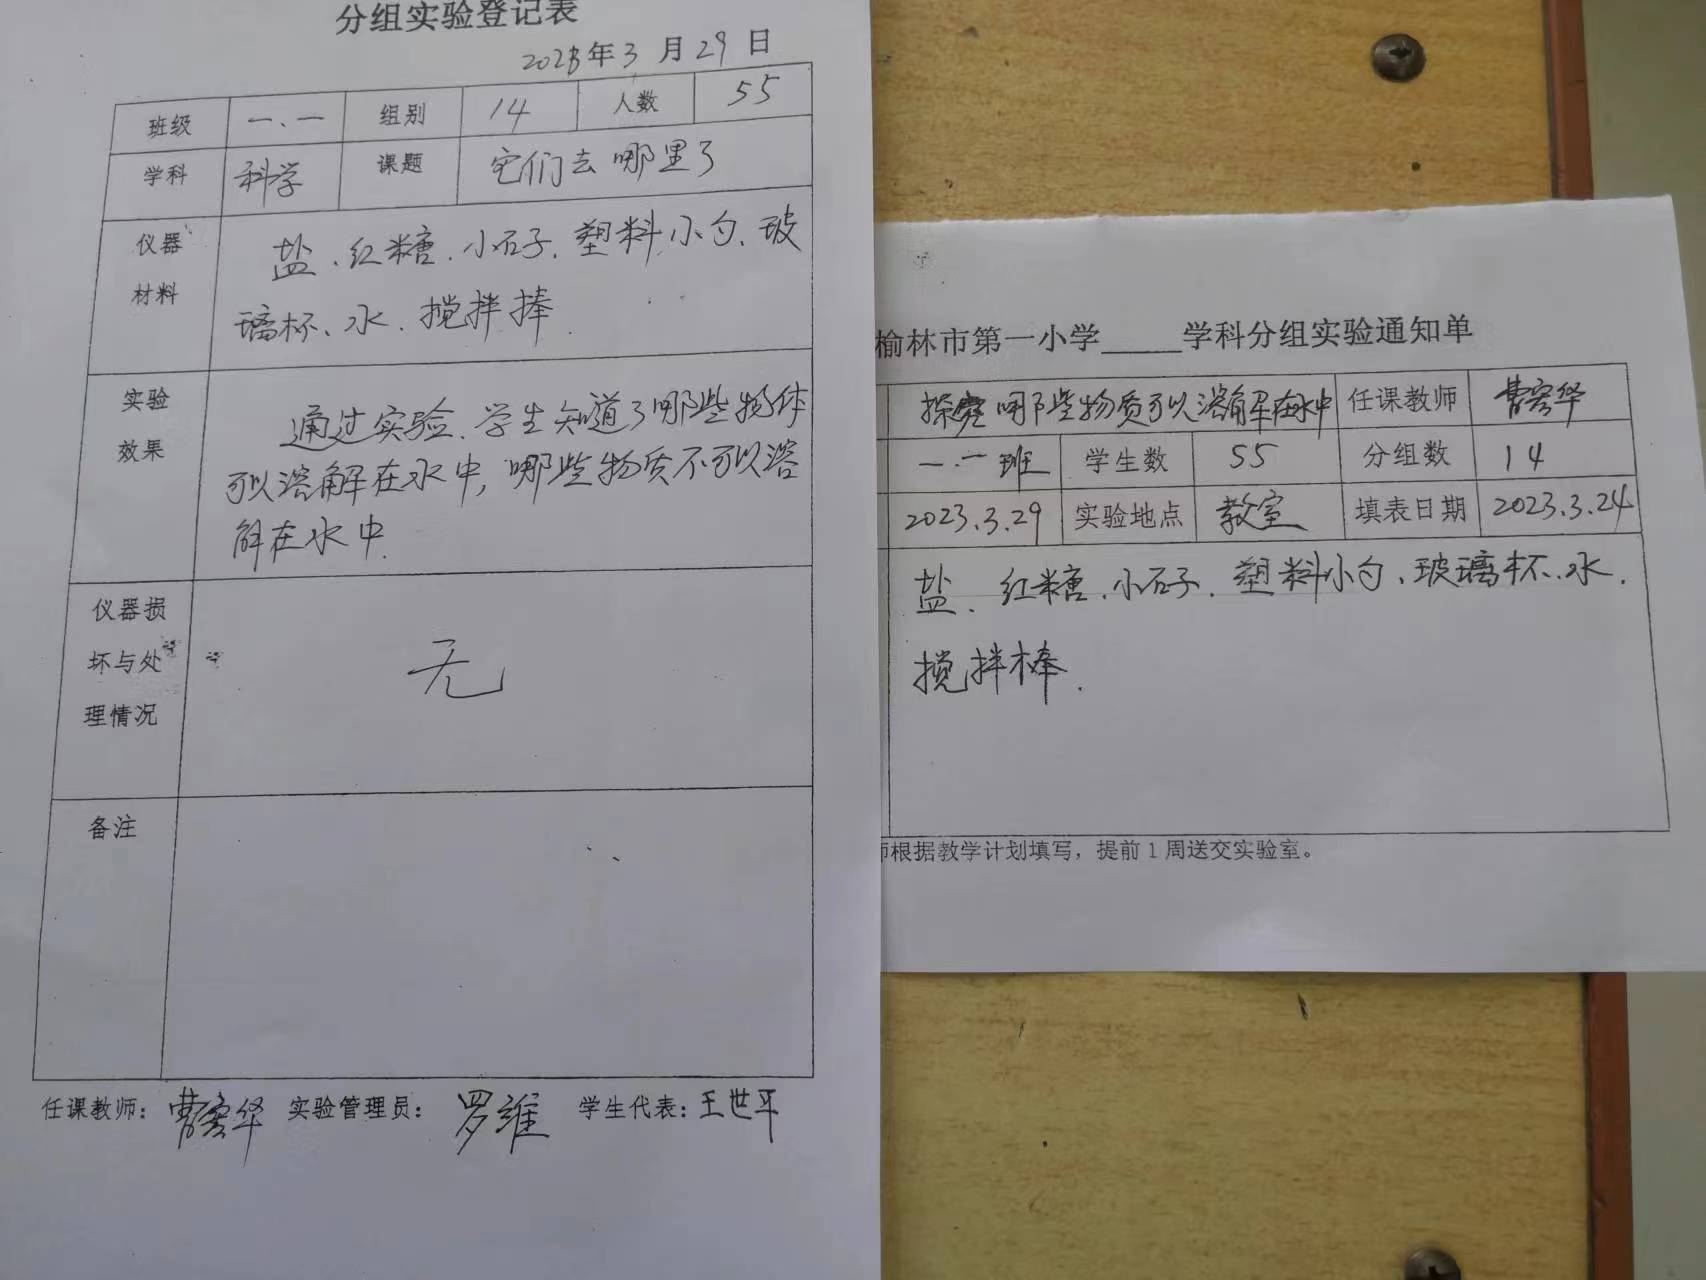 分组实验登记表
2023年3月29日
班级 一.一 组别 14 人数 55
学科 科学 课题 它们去哪里了
仪器材料 盐、红糖、小石子、塑料小勺、玻
璃杯、水、搅拌捧
实验效果 通过实验、学生知道了哪些物体
可以溶解在水中,哪些物质不可以溶
解在水中.
仪器损坏与处理情况 无
备注
任课教师: 曹 华 实验管理员: 罗維 学生代表: 王世平
榆林市第一小学_____学科分组实验通知单
探究哪些物质可以溶解在水中 任课教师 曹 华
一.一班 学生数 55 分组数 14
2023.3.29 实验地点 教室 填表日期 2023.3.24
盐、红糖、小石子、塑料小勺、玻璃杯、水、
搅拌棒.
师根据教学计划填写，提前1周送交实验室。